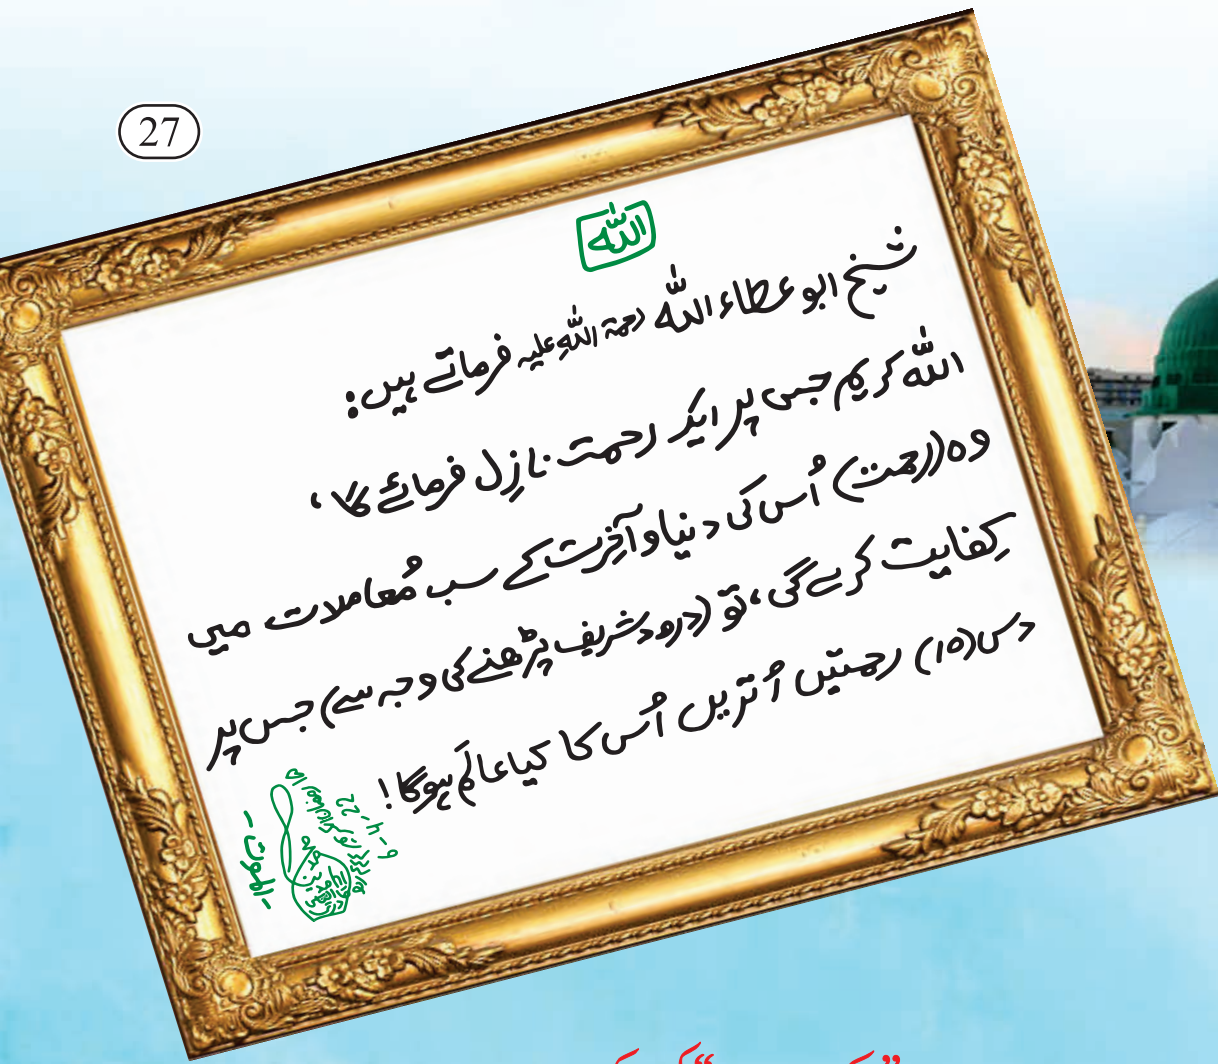 27
اللہ
شیخ ابو عطاء اللہ رحمۃ اللہِ علیہ فرماتے ہیں:
اللہ کریم جس پر ایک رحمت نازِل فرمائے گا،
وہ (رحمت) اُس کی دنیا و آخِرت کے سب مُعاملات میں
کِفایت کرے گی، تو (درود شریف پڑھنے کی وجہ سے) جس پر
دس (۱۰) رحمتیں اُتریں اُس کا کیا عالَم ہوگا!
-الموت-